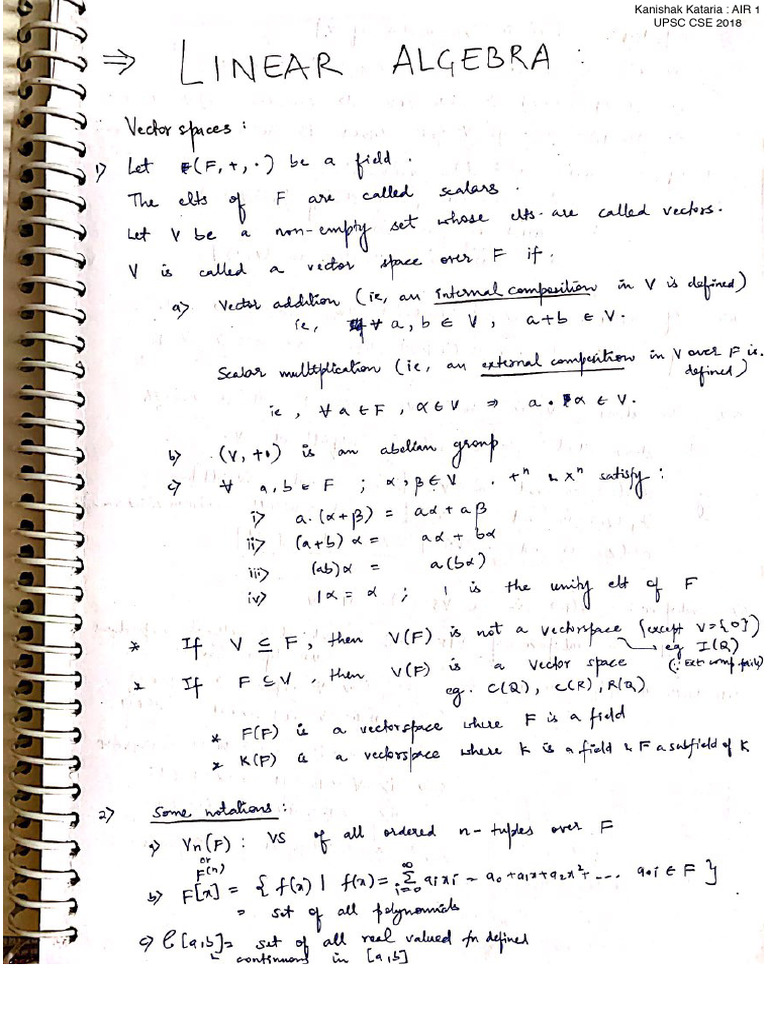 Kanishak Kataria : AIR 1
UPSC CSE 2018
⇒ LINEAR ALGEBRA :
Vector spaces :
1) Let (F, +, ·) be a field .
The elts of F are called scalars .
Let V be a non-empty set whose elts. are called vectors.
V is called a vector space over F if.
a) Vector addition (ie, an internal composition in V is defined)
ie, ∀ a, b ∈ V , a+b ∈ V.
Scalar multiplication (ie, an external composition in V over F is. defined)
ie , ∀ a ∈ F , α ∈ V ⇒ a . α ∈ V.
b) (V, +) is an abelian group
c) ∀ a, b ∈ F ; α, β ∈ V . +ⁿ & xⁿ satisfy :
i) a. (α+β) = aα + aβ
ii) (a+b) α = aα + bα
iii) (ab)α = a(bα)
iv) 1α = α ; 1 is the unity elt of F
* If V ⊆ F , then V(F) is not a vectorspace (except V={0})
→ eg I(Q)
(∵ Ext comp fails)
* If F ⊆ V , then V(F) is a vector space
eg. C(Q), C(R), R(Q)
* F(F) is a vectorspace where F is a field
* K(F) is a vectorspace where K is a field & F a subfield of K
2) Some notations :
a) Vn(F) : VS of all ordered n-tuples over F
or
F(n)
b) F[x] = { f(x) | f(x) = ∞Σi=0 aixi = a0 + a1x + a2x² + .... ai ∈ F }
= set of all polynomials
c) C[a,b] = set of all real valued fn defined
& continuous in [a,b]